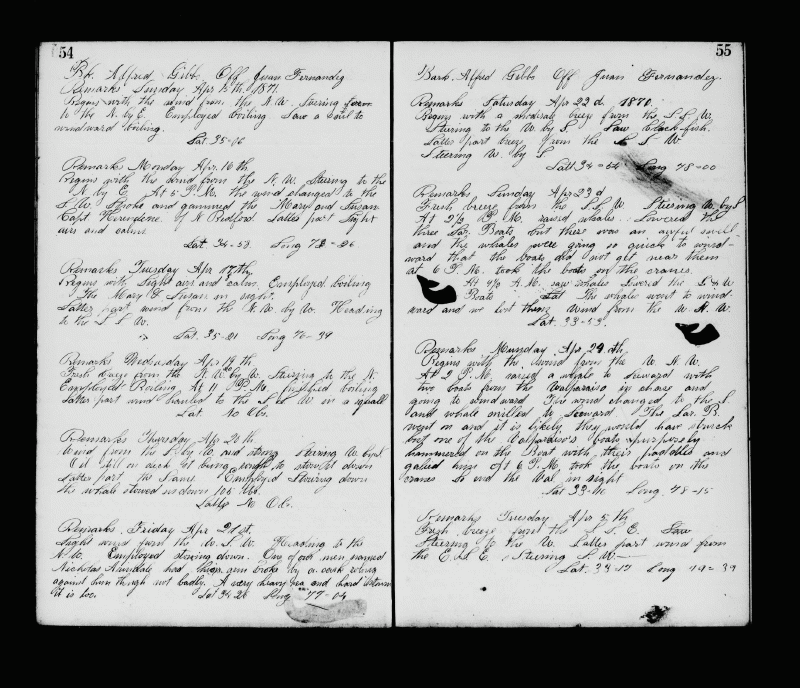 54
Bk. Alfred Gibbs Off Juan Fernandez
Remarks Sunday Apr 15th. 1871.
Begins with the wind from the N.W. Steering
to the N. by E. Employed boiling Saw a sail to
windward boiling.
Lat. 35-06
Remarks Monday Apr. 16th
Begins with the wind from the N.W. Steering to the
N. by E. At 5 P.M. the wind changed to the
S.W. Spoke and gammed the Mary and Susan
Capt. Herendene of N. Bedford Latter part light
airs and calms.
Lat. 34-53. Long
Remarks Tuesday Apr 17th,
Begins with light airs and calm. Employed boiling
The Mary & Susan in sight.
Latter part wind from the N.W. by W. Heading
to the S.S.W.
Lat. 35-01 Long 76-34
Remarks Wednesday Apr 19th
Fresh breeze from the N.W. by W. Steering to the N.
Employed Boiling At 11 P.M. finished boiling
Latter part wind hauled to the S.S.W. in a squall
Lat. No Obs.
Remarks Thursday Apr 20th
Wind from the S. by W. and strong Steering W. by S
Oil still on deck it being rough to stow it down
Latter part the Same Employed Stowing down
the whale stowed us down 105 bbls.
Latts No Obs.
Remarks, Friday Apr 21st.
Light wind from the W.S.W. Heading to the
N.W. Employed stowing down. One of our men named
Nicholas had his arm broke by a cask rolling
against him though not badly. A very heavy sea and hard
it is too. Lat 34 26 Long 77-04
55
Bark. Alfred Gibbs Off Juan Fernandez.
Remarks Saturday Apr 22d. 1870.
Begins with a moderate breeze from the S.S.W.
Steering to the W. by S. Saw Black-fish.
Latter part breeze from the S.S.W
Steering W. by S
Latt 34- Long 78-00
Remarks, Sunday Apr 23d
Fresh breeze from the S.S.W Steering W. by S
At 2½ P.M. raised whales. Lowered the
three Lar. Boats, but there was an awful swell
and the whales were going so quick to wind-
ward that the boats did not get near them
at 6 P.M. took the boats on the cranes.
At 9½ A.M. saw whales lowered the S. & W
Boats The whales went to wind-
ward and we lost them Wind from the W.N.W.
Lat. 33-53.
Remarks Munday Apr 24th
Begins with the wind from the W.N.W.
At 2 P.M. raised a whale to leeward with
two boats from the Valparaiso in chase and
going to windward The wind changed to the S.
and whale milled to leeward. The Lar. B.
went on and it is likely they would have struck
but one of the Valparaiso's boats purposely
hammered on the Boat with their paddles and
galied him off 6 P.M. took the boats on the
cranes So end the Val. in sight
Lat 33- Long. 78-15
Remarks Tuesday Apr 5th
Fresh breeze from the S.S.E. Saw
Steering to the W. Latter part wind from
the E.S.E. Steering S.W.
Lat. 33-17 Long 79-37